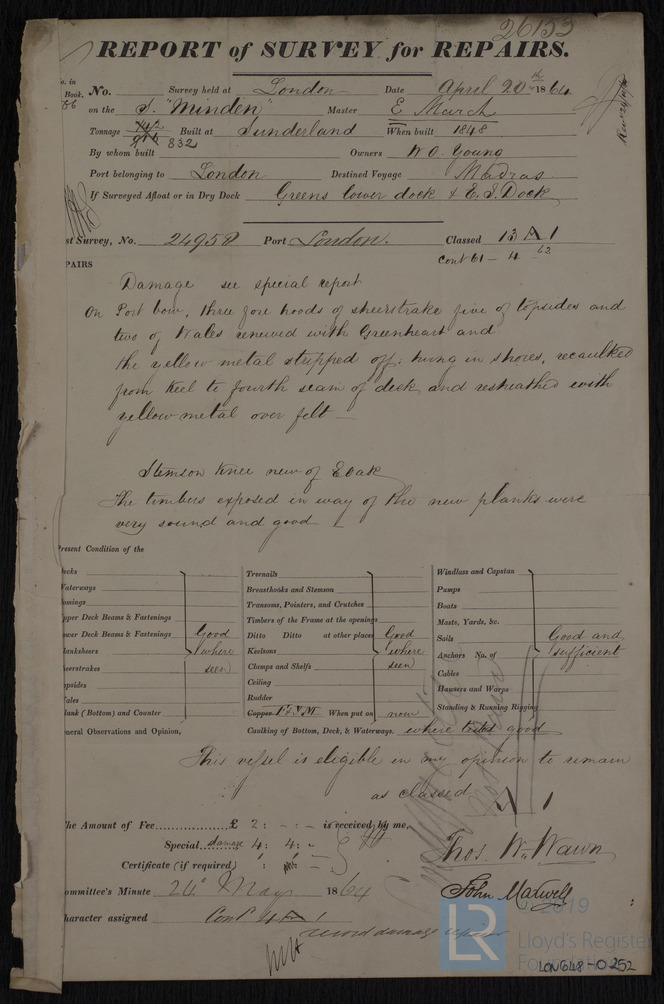 26153
REPORT of SURVEY for REPAIRS.
No. in Book. No. Survey held at London Date April 20th 1864
66 on the S. "Minden" Master E March
Tonnage 832 Built at Sunderland When built 1848
By whom built Owners W.O. Young
Port belonging to London Destined Voyage Madras
If Surveyed Afloat or in Dry Dock Greens lower dock & E.I. Dock
st Survey, No. 24958 Port London. Classed 13 A 1
Cont 61 - 4 62
PAIRS
Damage see special report
On Port bow, three fore hoods of sheerstrake five of topsides and
two of Wales renewed with Greenheart and
the yellow metal stripped off, hung in shores, recaulked
from keel to fourth seam of deck and resheathed with
yellow metal over felt
Stemson knee new of E oak
The timbers exposed in way of the new planks were
very sound and good
Present Condition of the
ecks
Waterways
omings
pper Deck Beams & Fastenings
ower Deck Beams & Fastenings Good
lanksheers where
heerstrakes seen
opsides
ales
lank (Bottom) and Counter
eneral Observations and Opinion,
Treenails
Breasthooks and Stemson
Transoms, Pointers, and Crutches
Timbers of the Frame at the openings
Ditto Ditto at other places Good
Keelsons where
Clamps and Shelfs seen
Ceiling
Rudder
Copper F & YM When put on now
Caulking of Bottom, Deck, & Waterways. where tested good
Windlass and Capstan
Pumps
Boats
Masts, Yards, &c.
Sails Good and
Anchors No. of sufficient
Cables
Hawsers and Warps
Standing & Running Rigging
This vessel is eligible in my opinion to remain
as classed A 1
The Amount of Fee £ 2 : - : - is received by me,
Special damage 4 : 4 : -
Certificate (if required)
Thos. Wm. Wawn
John Maxwell
ommittee's Minute 24th May 1864
haracter assigned Cont 4 A 1
record damage repairs
2019
LR
Lloyd's Register
Foundation
LON648-0252